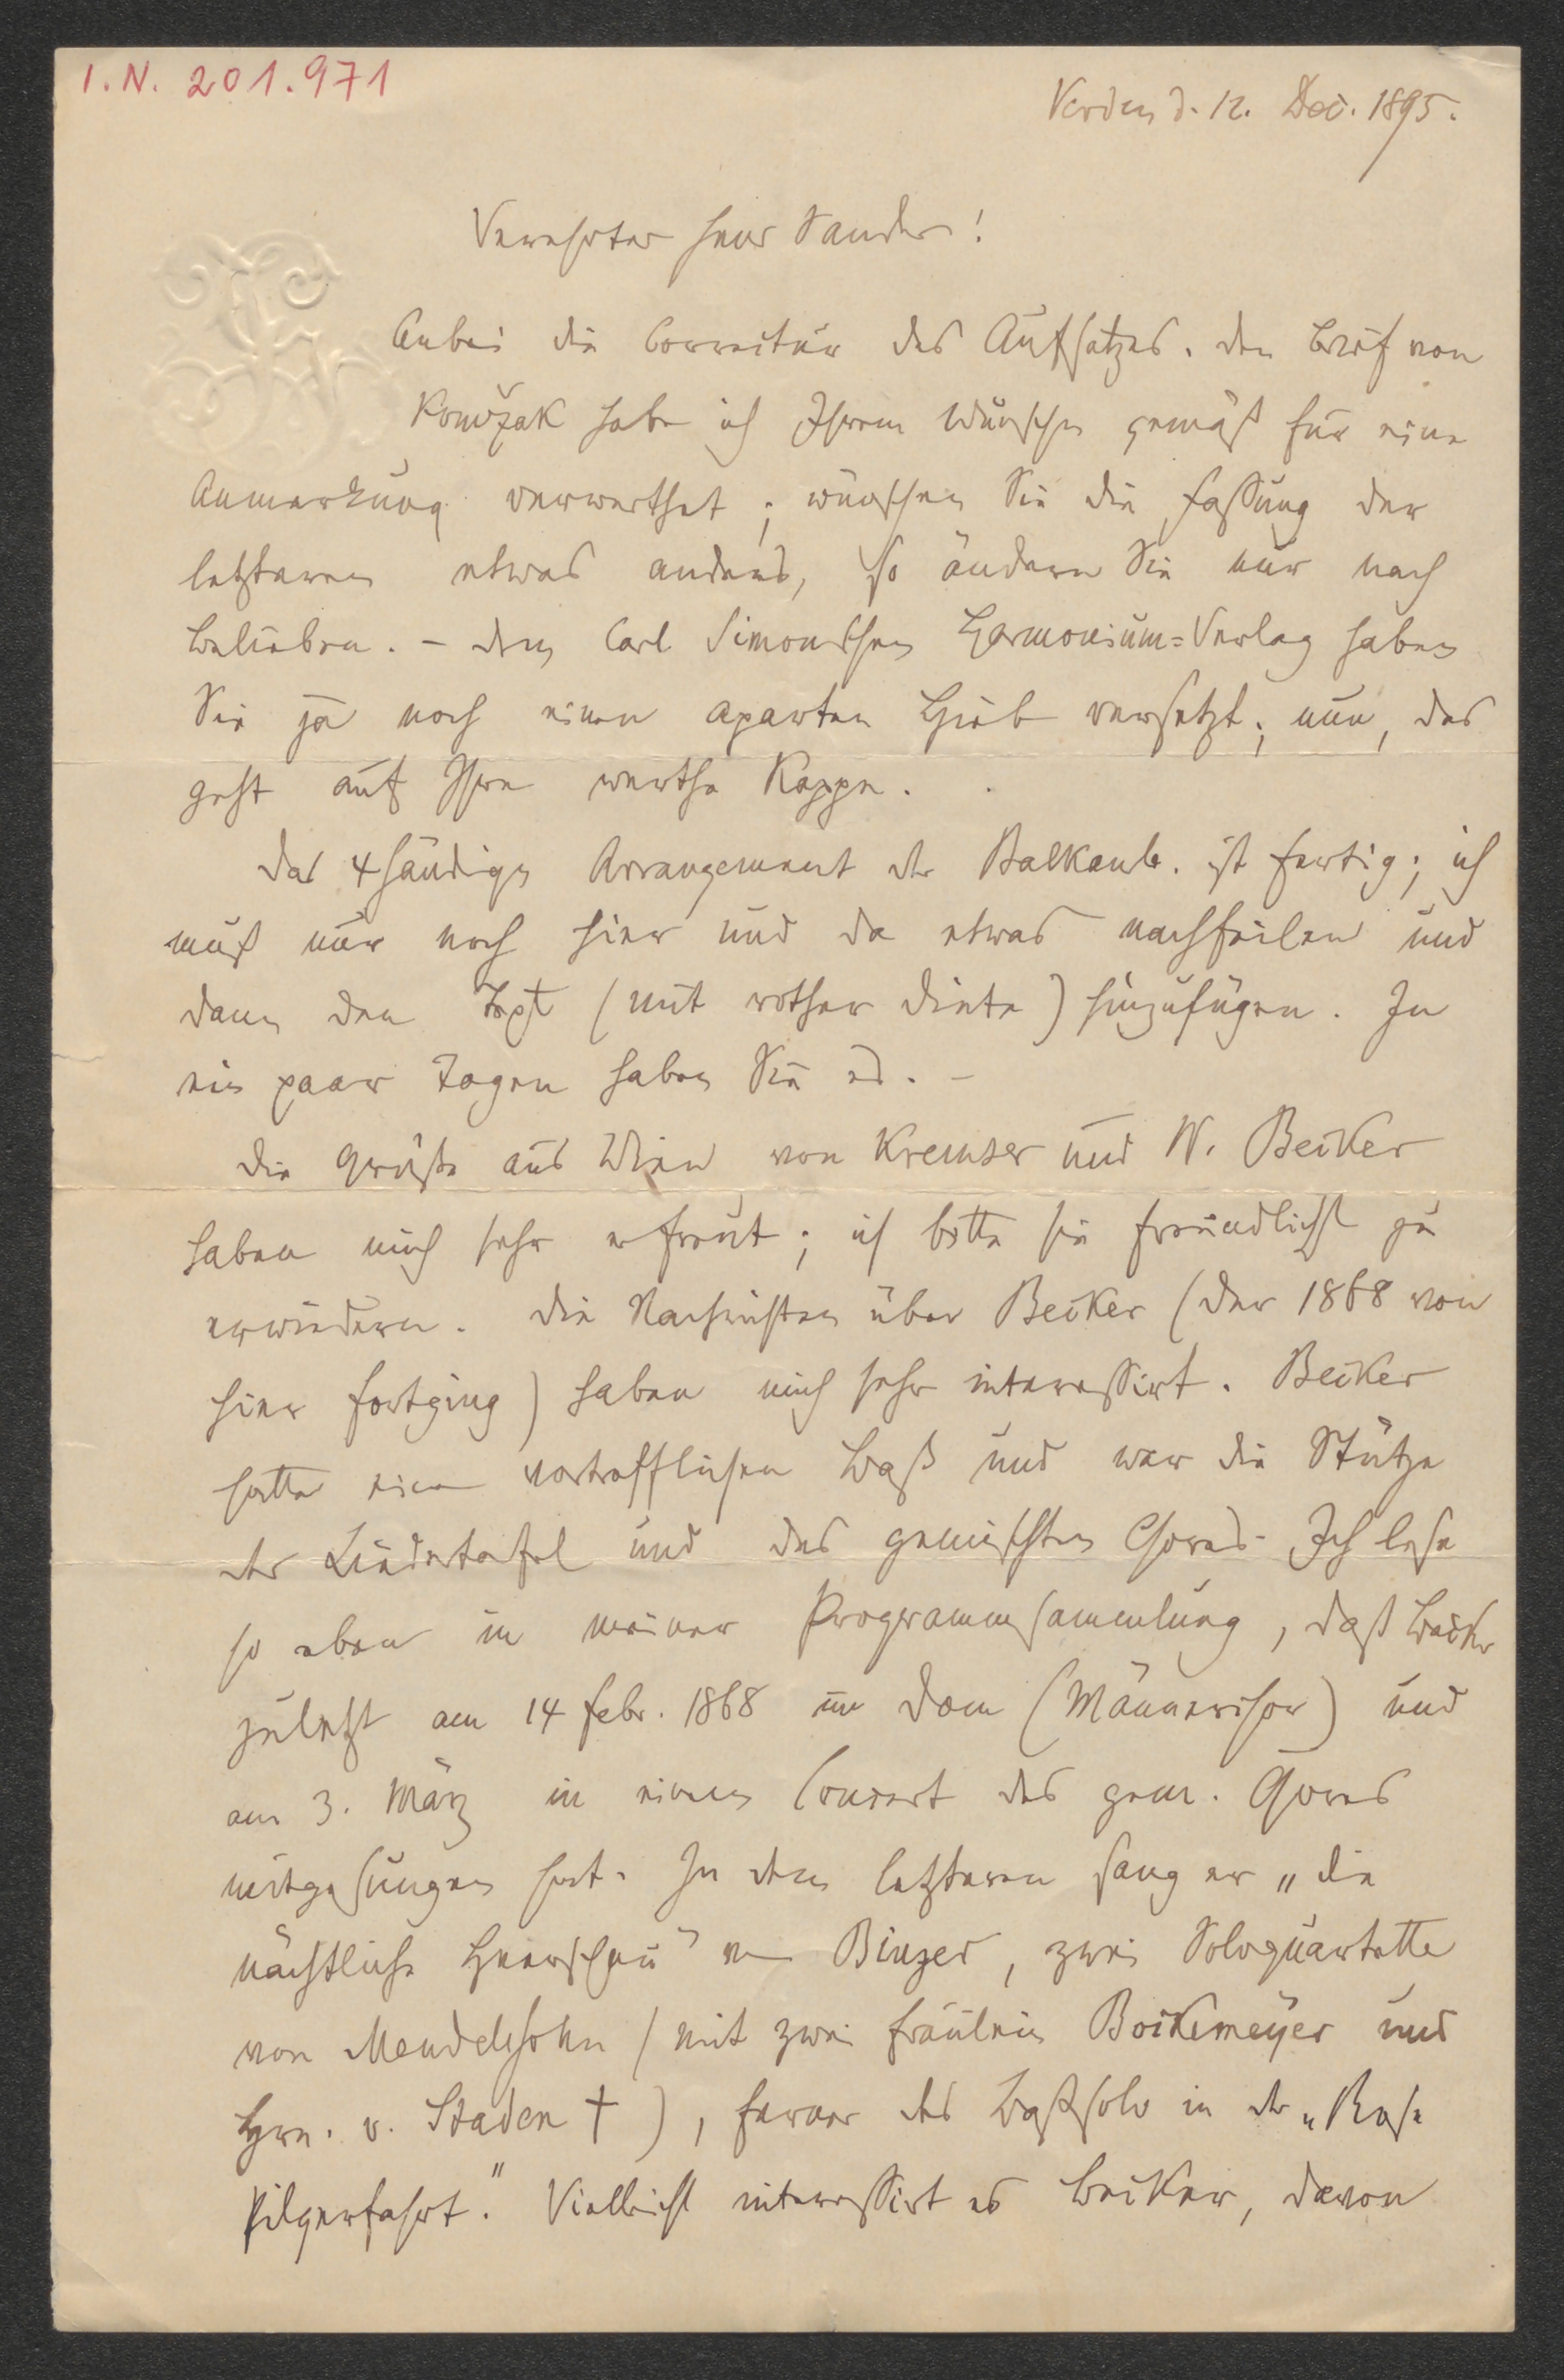 I. N. 201.971
Verden d. 12. Dec. 1895.
Verehrter Herr Sander!
Anbei die Correctur des Aufsatzes. Den Brief von
habe ich Ihrem Wunsche gemäß für eine
Anmerkung verwerthet; wünschen Sie die Fassung der
letzteren etwas anders, so ändern Sie nur nach
Belieben. – Dem Carl Simonschen Harmonium=Verlag haben
Sie ja noch einen aparten Hieb versetzt; nun, das
geht auf Ihre werthe Kappe.
Das 4händige Arrangement der Balkanb. ist fertig; ich
muß nur noch hier und da etwas nachfeilen und
dann den Text (mit rother Dinte) hinzufügen. In
ein paar Tagen haben Sie es. –
Die Grüße aus Wien von Kremser und W. Becker
haben mich sehr erfreut; ich bitte sie freundlichst zu
erwiedern. Die Nachrichten über Becker (der 1868 von
hier fortging) haben mich sehr interessirt. Becker
hatte einen vortrefflichen Baß und war die Stütze
der Liedertafel und des gemischten Chores. Ich lese
so eben in meiner Programmsammlung, daß Becker
zuletzt am 14 Febr. 1868 im Dom (Männerchor) und
am 3. März in einem Concert des gem. Chores
mitgesungen hat. In dem letzteren sang er „die
nächtliche Heerschau" von Binzer, zwei Soloquartette
von Mendelssohn (mit zwei Fräulein Bockemeyer und
Hrn. v. Staden †), ferner das Baßsolo in der „Rose
Pilgerfahrt." Vielleicht interessirt es Becker, davon